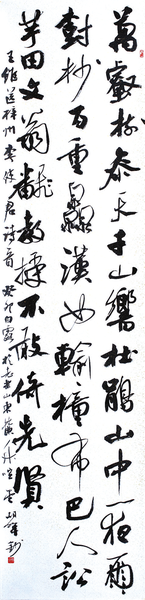 萬壑樹參天千山響杜鵑山中一夜雨
樹杪百重泉漢女輸橦布巴人訟
芋田文翁翻教授不敢倚先賢
王維送梓州李使君詩一首 癸卯白露於